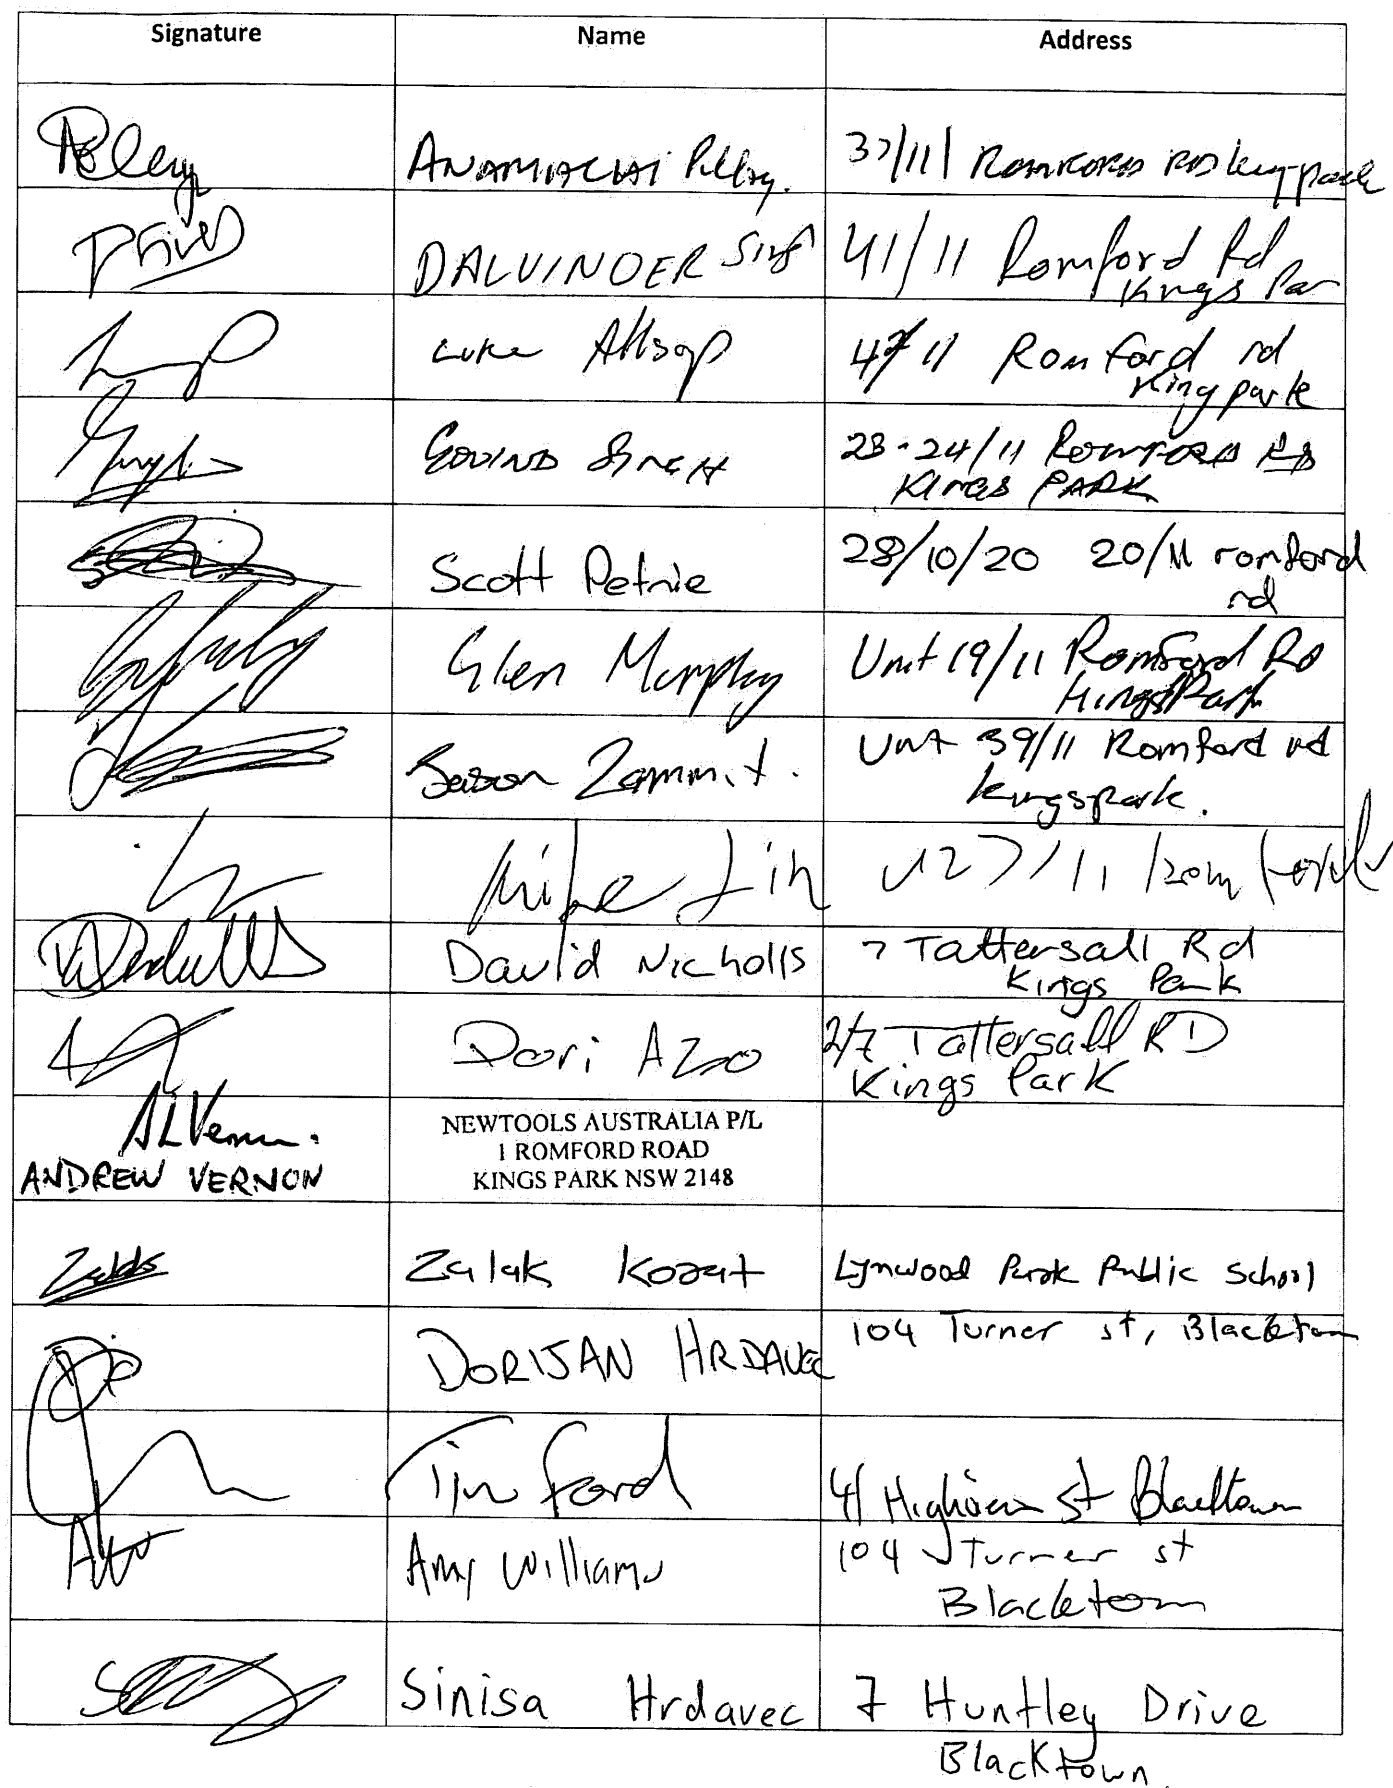 Signature Name Address
Pillay ANAMIACHAI Pillay. 37/11 ROMFORD RD
DALVINDER Singh 41/11 Romford Rd
Kings Par
Luke Allsop 11 Romford rd
King park
GOVIND SINGH 23-24/11 ROMFORD RD
KINGS PARK
Scott Petrie 28/10/20 20/11 romford
rd
Glen Murphy Unit 19/11 Romford RD
Kings Park
Jason Zammit. Unit 39/11 Romford rd
kingspark.
Mike Lin U27/11
David Nicholls 7 Tattersall Rd
Kings Park
Dori Azo 2/7 Tattersall RD
Kings Park
ALVernon.
ANDREW VERNON
NEWTOOLS AUSTRALIA P/L
1 ROMFORD ROAD
KINGS PARK NSW 2148
Zalak Kozat Lynwood Park Public School
DORIJAN HRDAVEC 104 Turner st, Blacktown
Tim Ford 41 St Blacktown
AW Amy Williams 104 Turner st
Blacktown
Sinisa Hrdavec 7 Huntley Drive
Blacktown.